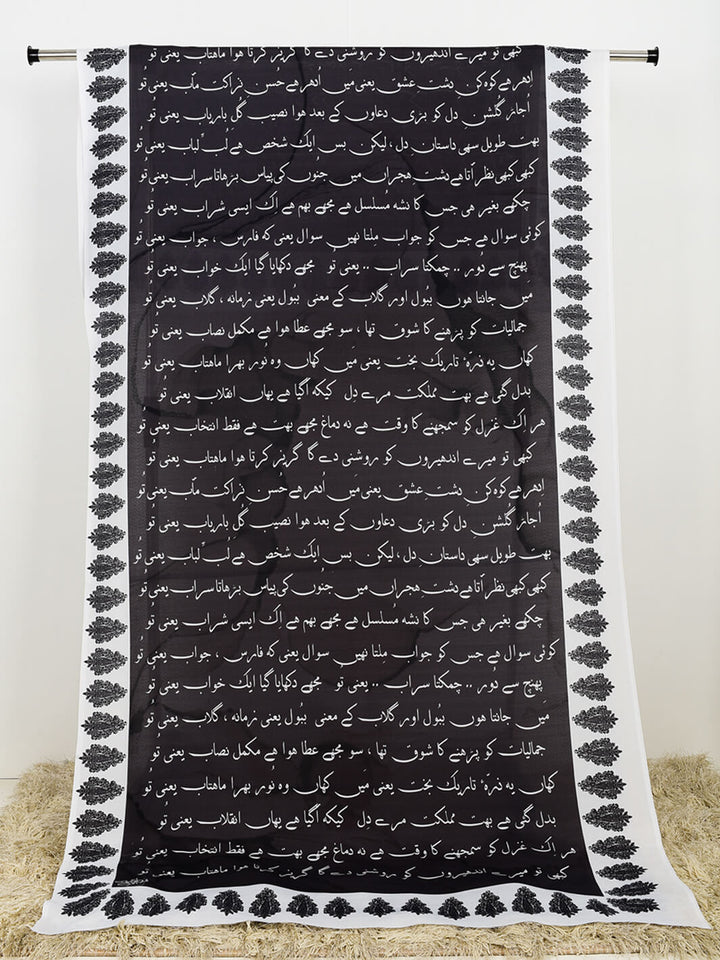 کبھی تو میرے اندھیروں کو روشنی دے گا گریز کرتا ہوا ماھتاب یعنی تُو
اِدھر ہے کوہ کن دشتِ عشق یعنی مَیں اُدھر ہے حُسن نزاکت مآب یعنی تُو
اُجاڑ گلشنِ دل کو بڑی دعاوں کے بعد ہوا نصیب گُل باریاب یعنی تُو
بہت طویل سہی داستانِ دل ، لیکن بس ایک شخص ہے لُبِّ لباب یعنی تُو
کبھی کبھی نظر آتا ہے دشتِ ہجراں میں جنُوں کی پیاس بڑھاتا سراب یعنی تُو
چکھے بغیر ہی جس کا نشہ مُسلسل ہے مجھے بہم ہے اِک ایسی شراب یعنی تُو
کوئی سوال ہے جس کو جواب مِلتا نہیں سوال یعنی کہ فارس ، جواب یعنی تُو
پہنچ سے دُور .. چمکتا سراب .. یعنی تُو مجھے دکھایا گیا ایک خواب یعنی تُو
مَیں جانتا ہوں ببُول اور گلاب کے معنی ببُول یعنی زمانہ ، گلاب یعنی تُو
جمالیات کو پڑھنے کا شوق تھا ، سو مجھے عطا ہوا ہے مکمل نصاب یعنی تُو
کہاں یہ ذرّہٴ تاریک بخت یعنی مَیں کہاں وہ نُور بھرا ماھتاب یعنی تُو
بدل گئی ہے بہت مملکت مرے دِل کی کہ آگیا ہے یہاں انقلاب یعنی تُو
ہر اِک غزل کو سمجھنے کا وقت ہے نہ دماغ مجھے بہت ہے فقط انتخاب یعنی تُو
کبھی تو میرے اندھیروں کو روشنی دے گا گریز کرتا ہوا ماھتاب یعنی تُو
اِدھر ہے کوہ کن دشتِ عشق یعنی مَیں اُدھر ہے حُسن نزاکت مآب یعنی تُو
اُجاڑ گلشنِ دل کو بڑی دعاوں کے بعد ہوا نصیب گُل باریاب یعنی تُو
بہت طویل سہی داستانِ دل ، لیکن بس ایک شخص ہے لُبِّ لباب یعنی تُو
کبھی کبھی نظر آتا ہے دشتِ ہجراں میں جنوں کی پیاس بڑھاتا سراب یعنی تُو
چکھے بغیر ہی جس کا نشہ مُسلسل ہے مجھے بہم ہے اِک ایسی شراب یعنی تُو
کوئی سوال ہے جس کو جواب مِلتا نہیں سوال یعنی کہ فارس ، جواب یعنی تُو
پہنچ سے دُور .. چمکتا سراب .. یعنی تُو مجھے دکھایا گیا ایک خواب یعنی تُو
مَیں جانتا ہوں ببُول اور گلاب کے معنی ببُول یعنی زمانہ ، گلاب یعنی تُو
جمالیات کو پڑھنے کا شوق تھا ، سو مجھے عطا ہوا ہے مکمل نصاب یعنی تُو
کہاں یہ ذرّہٴ تاریک بخت یعنی مَیں کہاں وہ نُور بھرا ماھتاب یعنی تُو
بدل گئی ہے بہت مملکت مرے دِل کی کہ آگیا ہے یہاں انقلاب یعنی تُو
ہر اِک غزل کو سمجھنے کا وقت ہے نہ دماغ مجھے بہت ہے فقط انتخاب یعنی تُو
کبھی تو میرے اندھیروں کو روشنی دے گا گریز کرتا ہوا ماھتاب یعنی تُو